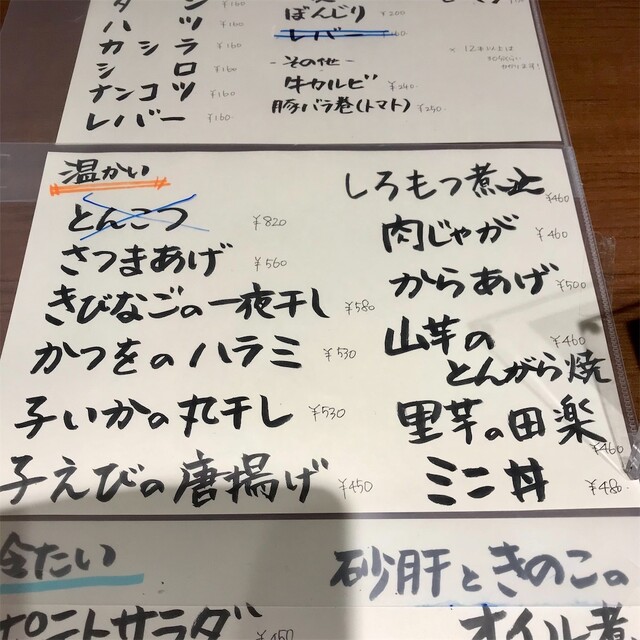 ハ ツ ¥160
カシラ ¥160
シロ ¥160
ナンコツ ¥160
レバー ¥160
ぼんじり ¥200
レバー
-その他-
牛カルビ ¥240
豚バラ巻(トマト) ¥250
温かい
とんこつ ¥820
さつまあげ ¥560
きびなごの一夜干し ¥580
かつをのハラミ ¥530
子いかの丸干し ¥530
子えびの唐揚げ ¥450
しろもつ煮込 ¥460
肉じゃが ¥460
からあげ ¥500
山芋の ¥460
とんがら焼
里芋の田楽 ¥460
ミニ丼 ¥480
冷たい
砂肝ときのこの
オイル煮
サラダ ¥450